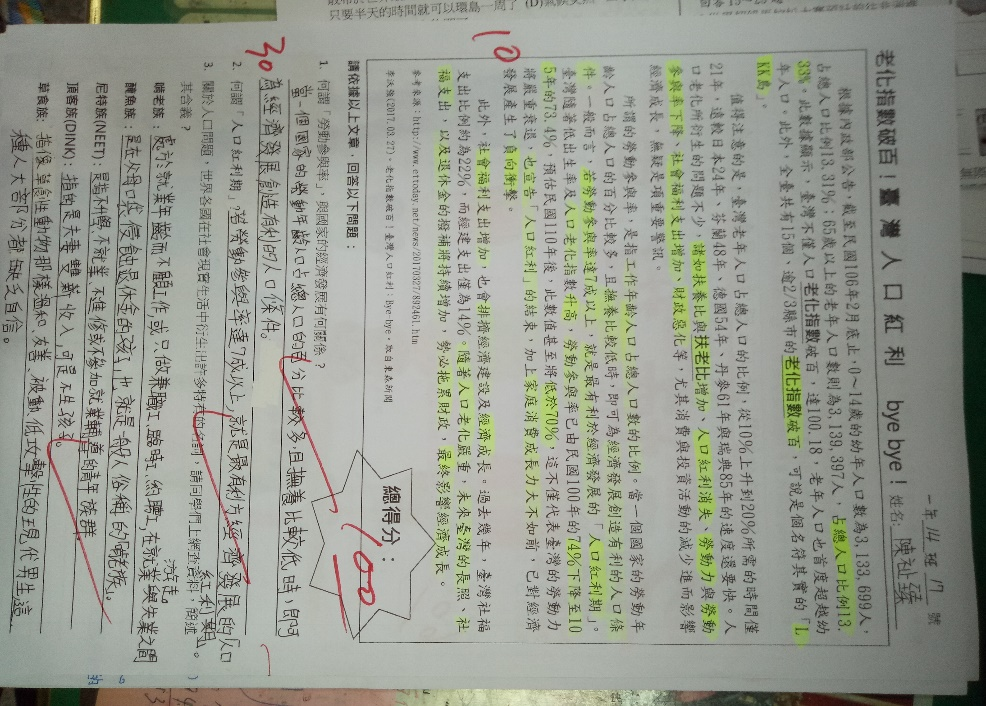 老化指數破百！臺灣人口紅利 bye bye！
一年14班17號
姓名：陳祉
根據內政部公告，截至民國106年2月底止，0～14歲的幼年人口數為3,133,699人，
占總人口比例13.31%；65歲以上的老年人口數則為3,139,397人，占總人口比例13.
33%。此數據顯示，臺灣不僅人口老化指數破百，達100.18，老年人口也首度超越幼
年人口。此外，全臺共有15個、逾2/3縣市的老化指數破百，可說是個名符其實的「L
KK島」。
值得注意的是，臺灣老年人口占總人口的比例，從10%上升到20%所需的時間僅
21年，遠較日本24年、芬蘭48年、德國54年、丹麥61年與瑞典85年的速度還要快。人
口老化所衍生的問題不少，諸如扶養比與扶老比增加、人口紅利消失、勞動力與勞動
參與率下降、社會福利支出增加、財政惡化等，尤其消費與投資活動的減少進而影響
經濟成長，無疑是項重要警訊。
所謂的勞動參與率，是指工作年齡人口占總人口數的比例。當一個國家的勞動年
齡人口占總人口的百分比較多，且撫養比較低時，即可為經濟發展創造有利的人口條
件。一般而言，若勞動參與率達成以上，就是最有利於經濟發展的「人口紅利期」。
臺灣隨著低出生率及人口老化指數升高，勞動參與率已由民國100年的74%下降至10
5年的73.4%，預估民國110年後，此數值甚至將低於70%，這不僅代表臺灣的勞動力
將嚴重衰退，也宣告「人口紅利」的結束，加上家庭消費成長力大不如前，已對經濟
發展產生了負向衝擊。
此外，社會福利支出增加，也會排擠經濟建設及經濟成長。過去幾年，臺灣社福
支出比例約為22%，而經建支出僅為14%。隨著人口老化嚴重，未來臺灣的長照、社
福支出，以及退休金的撥補將持續增加，勢必拖累財政，最終影響經濟成長。
參考來源：http://www.ettoday.net/news/20170327/892461.htm
(2017.03.27)。老化指數破百！臺灣人口紅利：Bye-bye。取自東森新聞
請依據以上文章，回答以下問題：
總得分：
100
10
30
1. 何謂「勞動參與率」，與國家的經濟發展有何關係？
當一個國家的勞動年齡人口占總人口的百分比較多且撫養比較低時，即可
為經濟發展創造有利的人口條件。
2. 何謂「人口紅利期」？
若勞動參與率達7成以上，就是最有利方經濟發展的「人口
紅利期」。
3. 關於人口問題，世界各國在社會現實生活中衍生出許多特有的名詞，請同學們上網查資料，敘述
其含義？
啃老族：處於就業年齡而不願工作，或只做兼職、臨時、約聘工，在就業與失業之間
游走。
鮪魚族：是在父母長侵食退休金的孩子，也就是一般人俗稱的「啃老族」。
尼特族(NEET)：是指不升學、不就業、不進修或不參加就業輔導的青年族群
頂客族(DINK)：指的是夫妻雙薪收入，可是不生孩子。
草食族：指像草食性動物那樣溫和、友善、被動、低攻擊性的現代男生，這
種人大部分都缺乏自信。